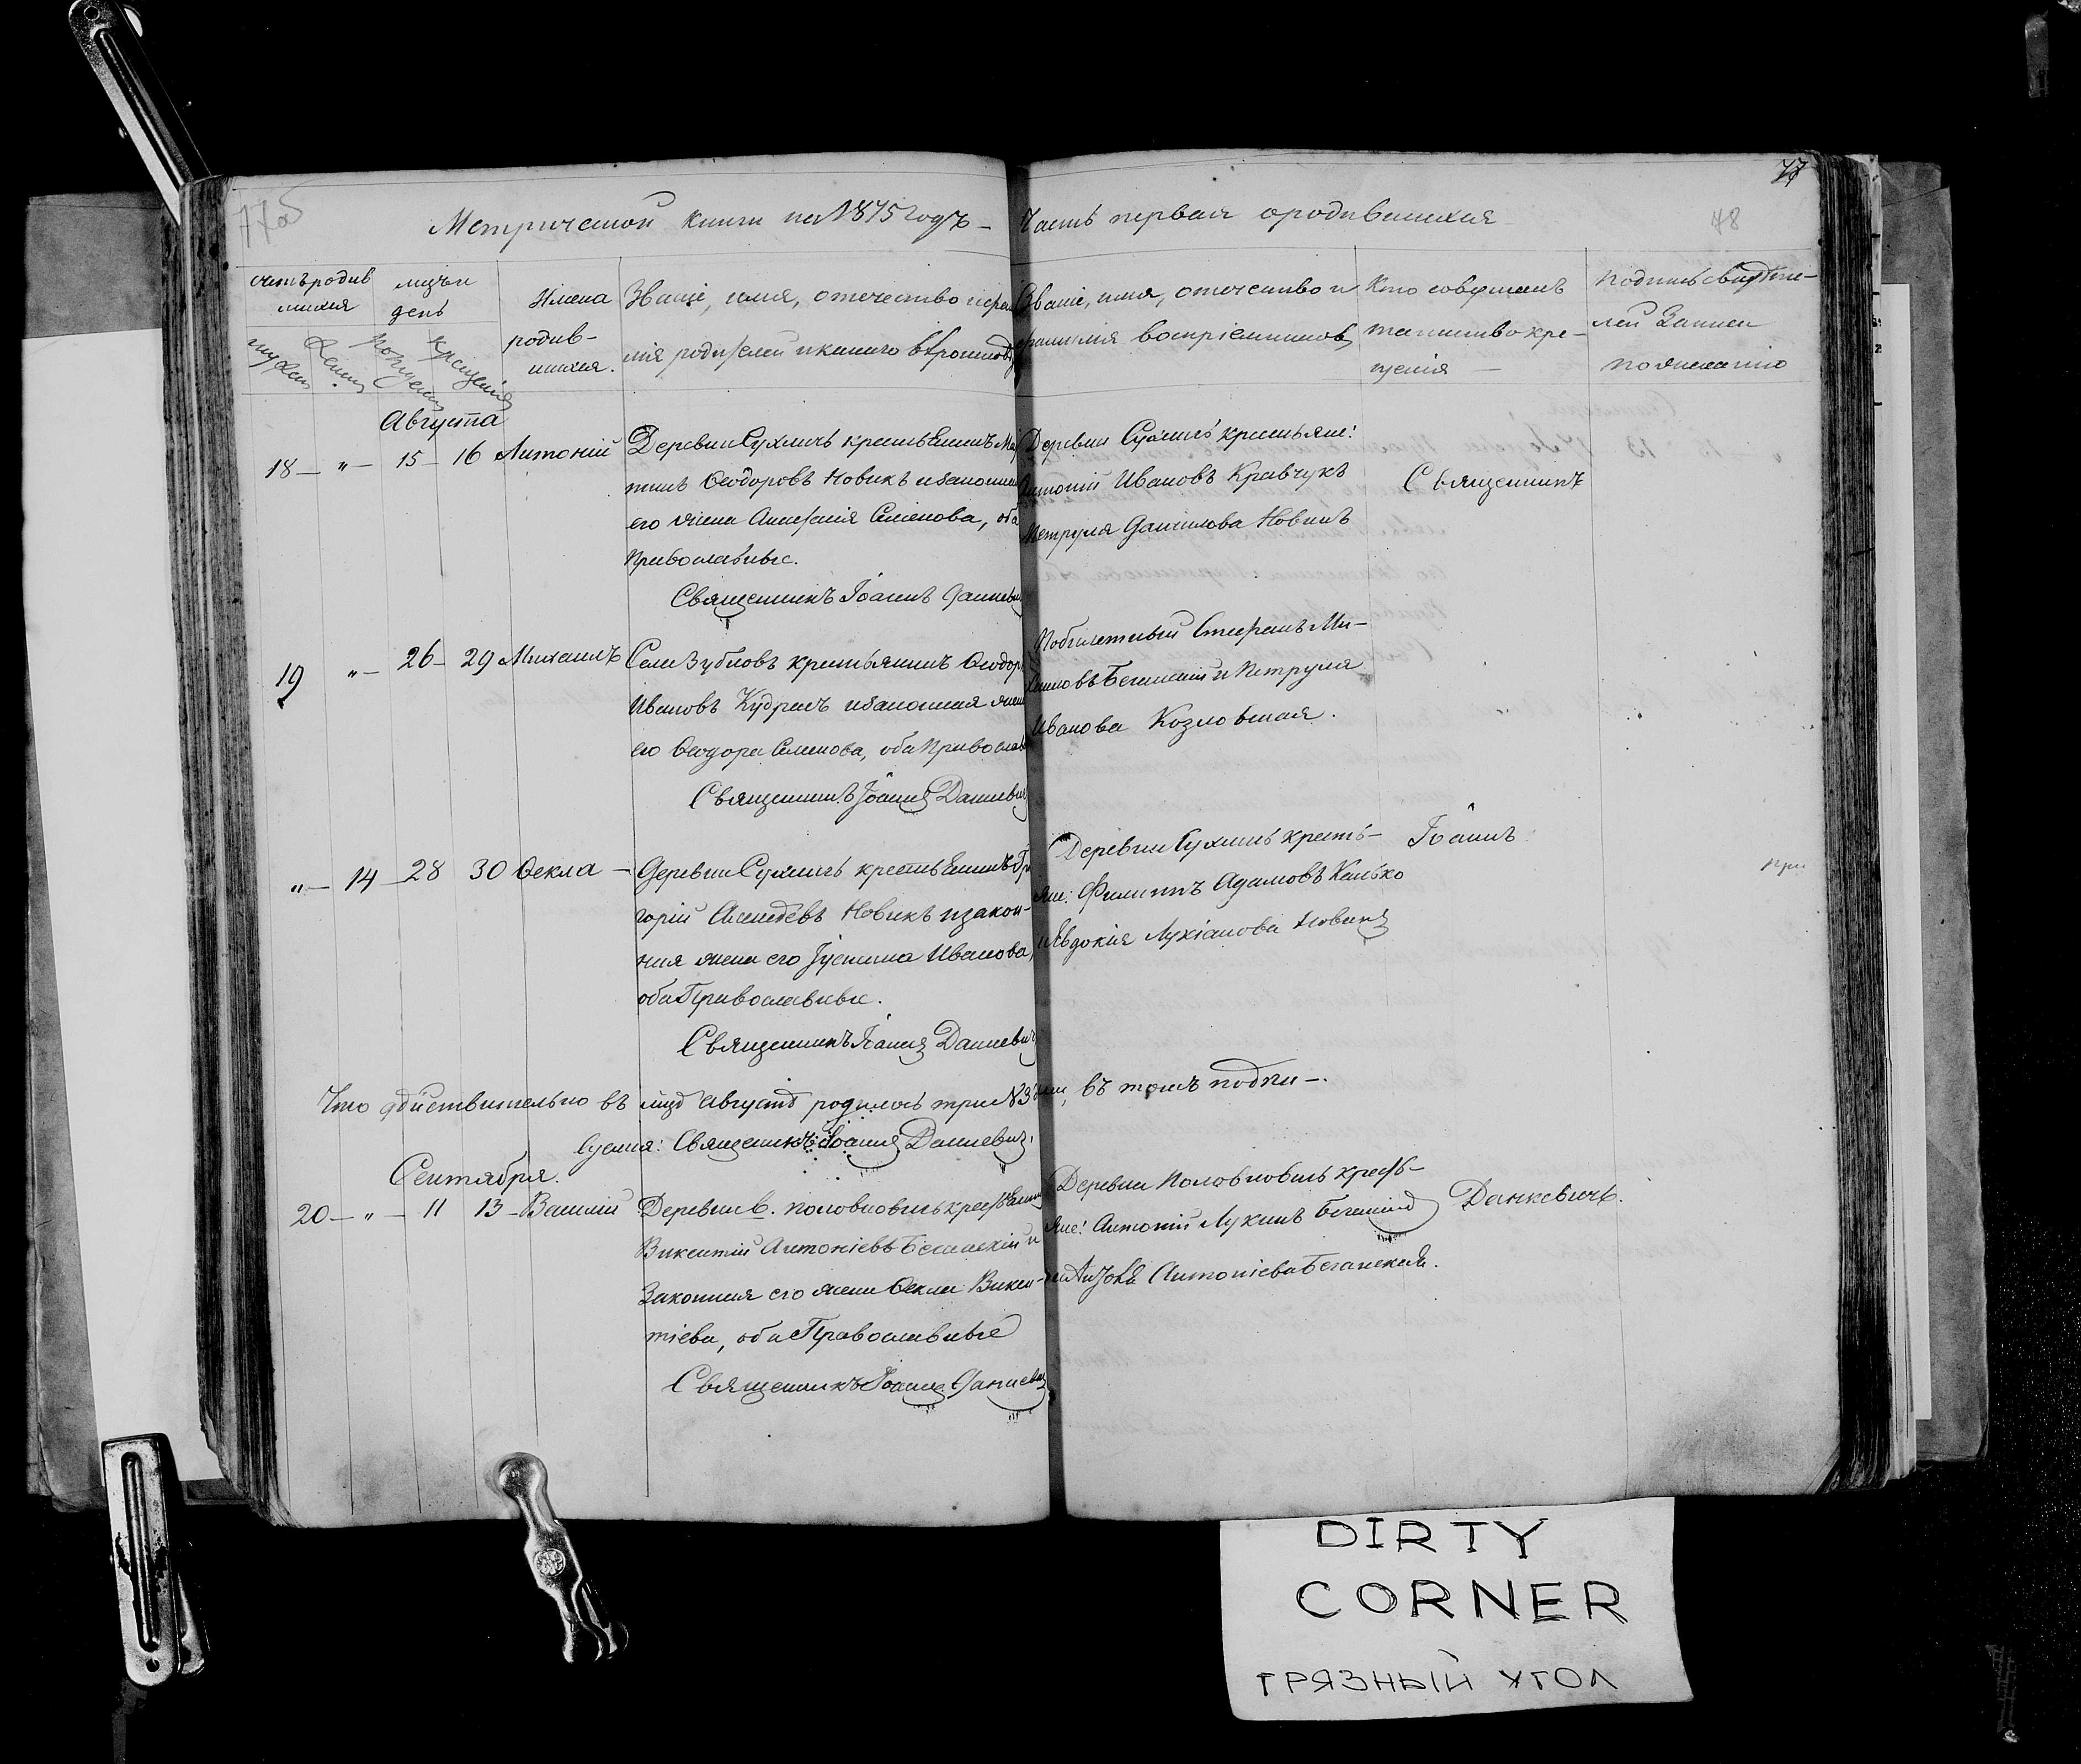 77об
77
78
Метрической книги на 1875 годъ — Часть первая о родившихся
Счетъ родив
шихся
мѣсяцъ и
день
Имена
родив-
шихся.
Званіе, имя, отечество и фами
лія родителей и какого вѣроисповѣд
Званіе, имя, отечество и
фамилія воспріемниковъ
Кто совершалъ
таинство кре-
щенія —
Подпись свидѣте-
лей записи
по желанію
Августа
18 — „ — 15 — 16 Антоній
Деревни Сухличъ крестьянинъ Мар
тинъ Ѳеодоровъ Новикъ и законная
его жена Анастасія Семенова, оба
Православные.
Священникъ Іоаннъ Данкевич
Деревни Сухличъ крестьяне:
Антоній Ивановъ Кравчукъ
Петруля Данилова Новикъ
Священникъ
19 „ — 26 — 29 Михаилъ
Села Зубковъ крестьянинъ Ѳеодоръ
Ивановъ Кудракъ и законная жена
его Ѳеодора Семенова, оба Православ
Священникъ Іоаннъ Данкевич
Стефанъ Ми-
хаиловъ Беганскій и Петруля
Иванова Козловская.
„ — 14 — 28 30 Ѳекла —
Деревни Сухличъ крестьянинъ Гри
горій Алексѣевъ Новикъ и закон-
ная жена его Іустина Иванова,
оба Православные.
Священникъ Іоаннъ Данкевич
Деревни Сухличъ кресть-
яне: Филиппъ Адамовъ Канько
и Евдокія Лукіанова Новикъ
Іоаннъ
при
Что дѣйствительно въ мцѣ Августѣ родилось три №3 въ томъ подпи-
суемся: Священникъ Іоаннъ Данкевичъ.
Сентября.
20 — „ — 11 13 — Василій
Деревни В. Половковичъ крестьянинъ
Викентій Антоніевъ Беганскій и
Законная его жена Ѳекла Викен-
тіева, оба Православные
Священникъ Іоаннъ Данкевич
Деревни Половковичъ кресть-
яне: Антоній Лукинъ Беганскій
Антоніева Беганская.
Данкевичъ.
DIRTY
CORNER
ГРЯЗНЫЙ УГОЛ